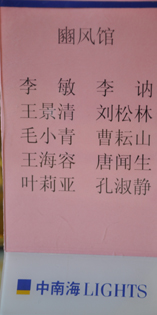 豳风馆
李 敏 李 讷
王景清 刘松林
毛小青 曹耘山
王海容 唐闻生
叶莉亚 孔淑静
中南海 LIGHTS